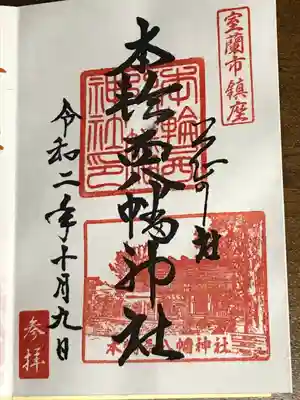 室蘭市鎮座
本輪西八幡神社
令和二年十月九日
参拝
本輪西八幡神社